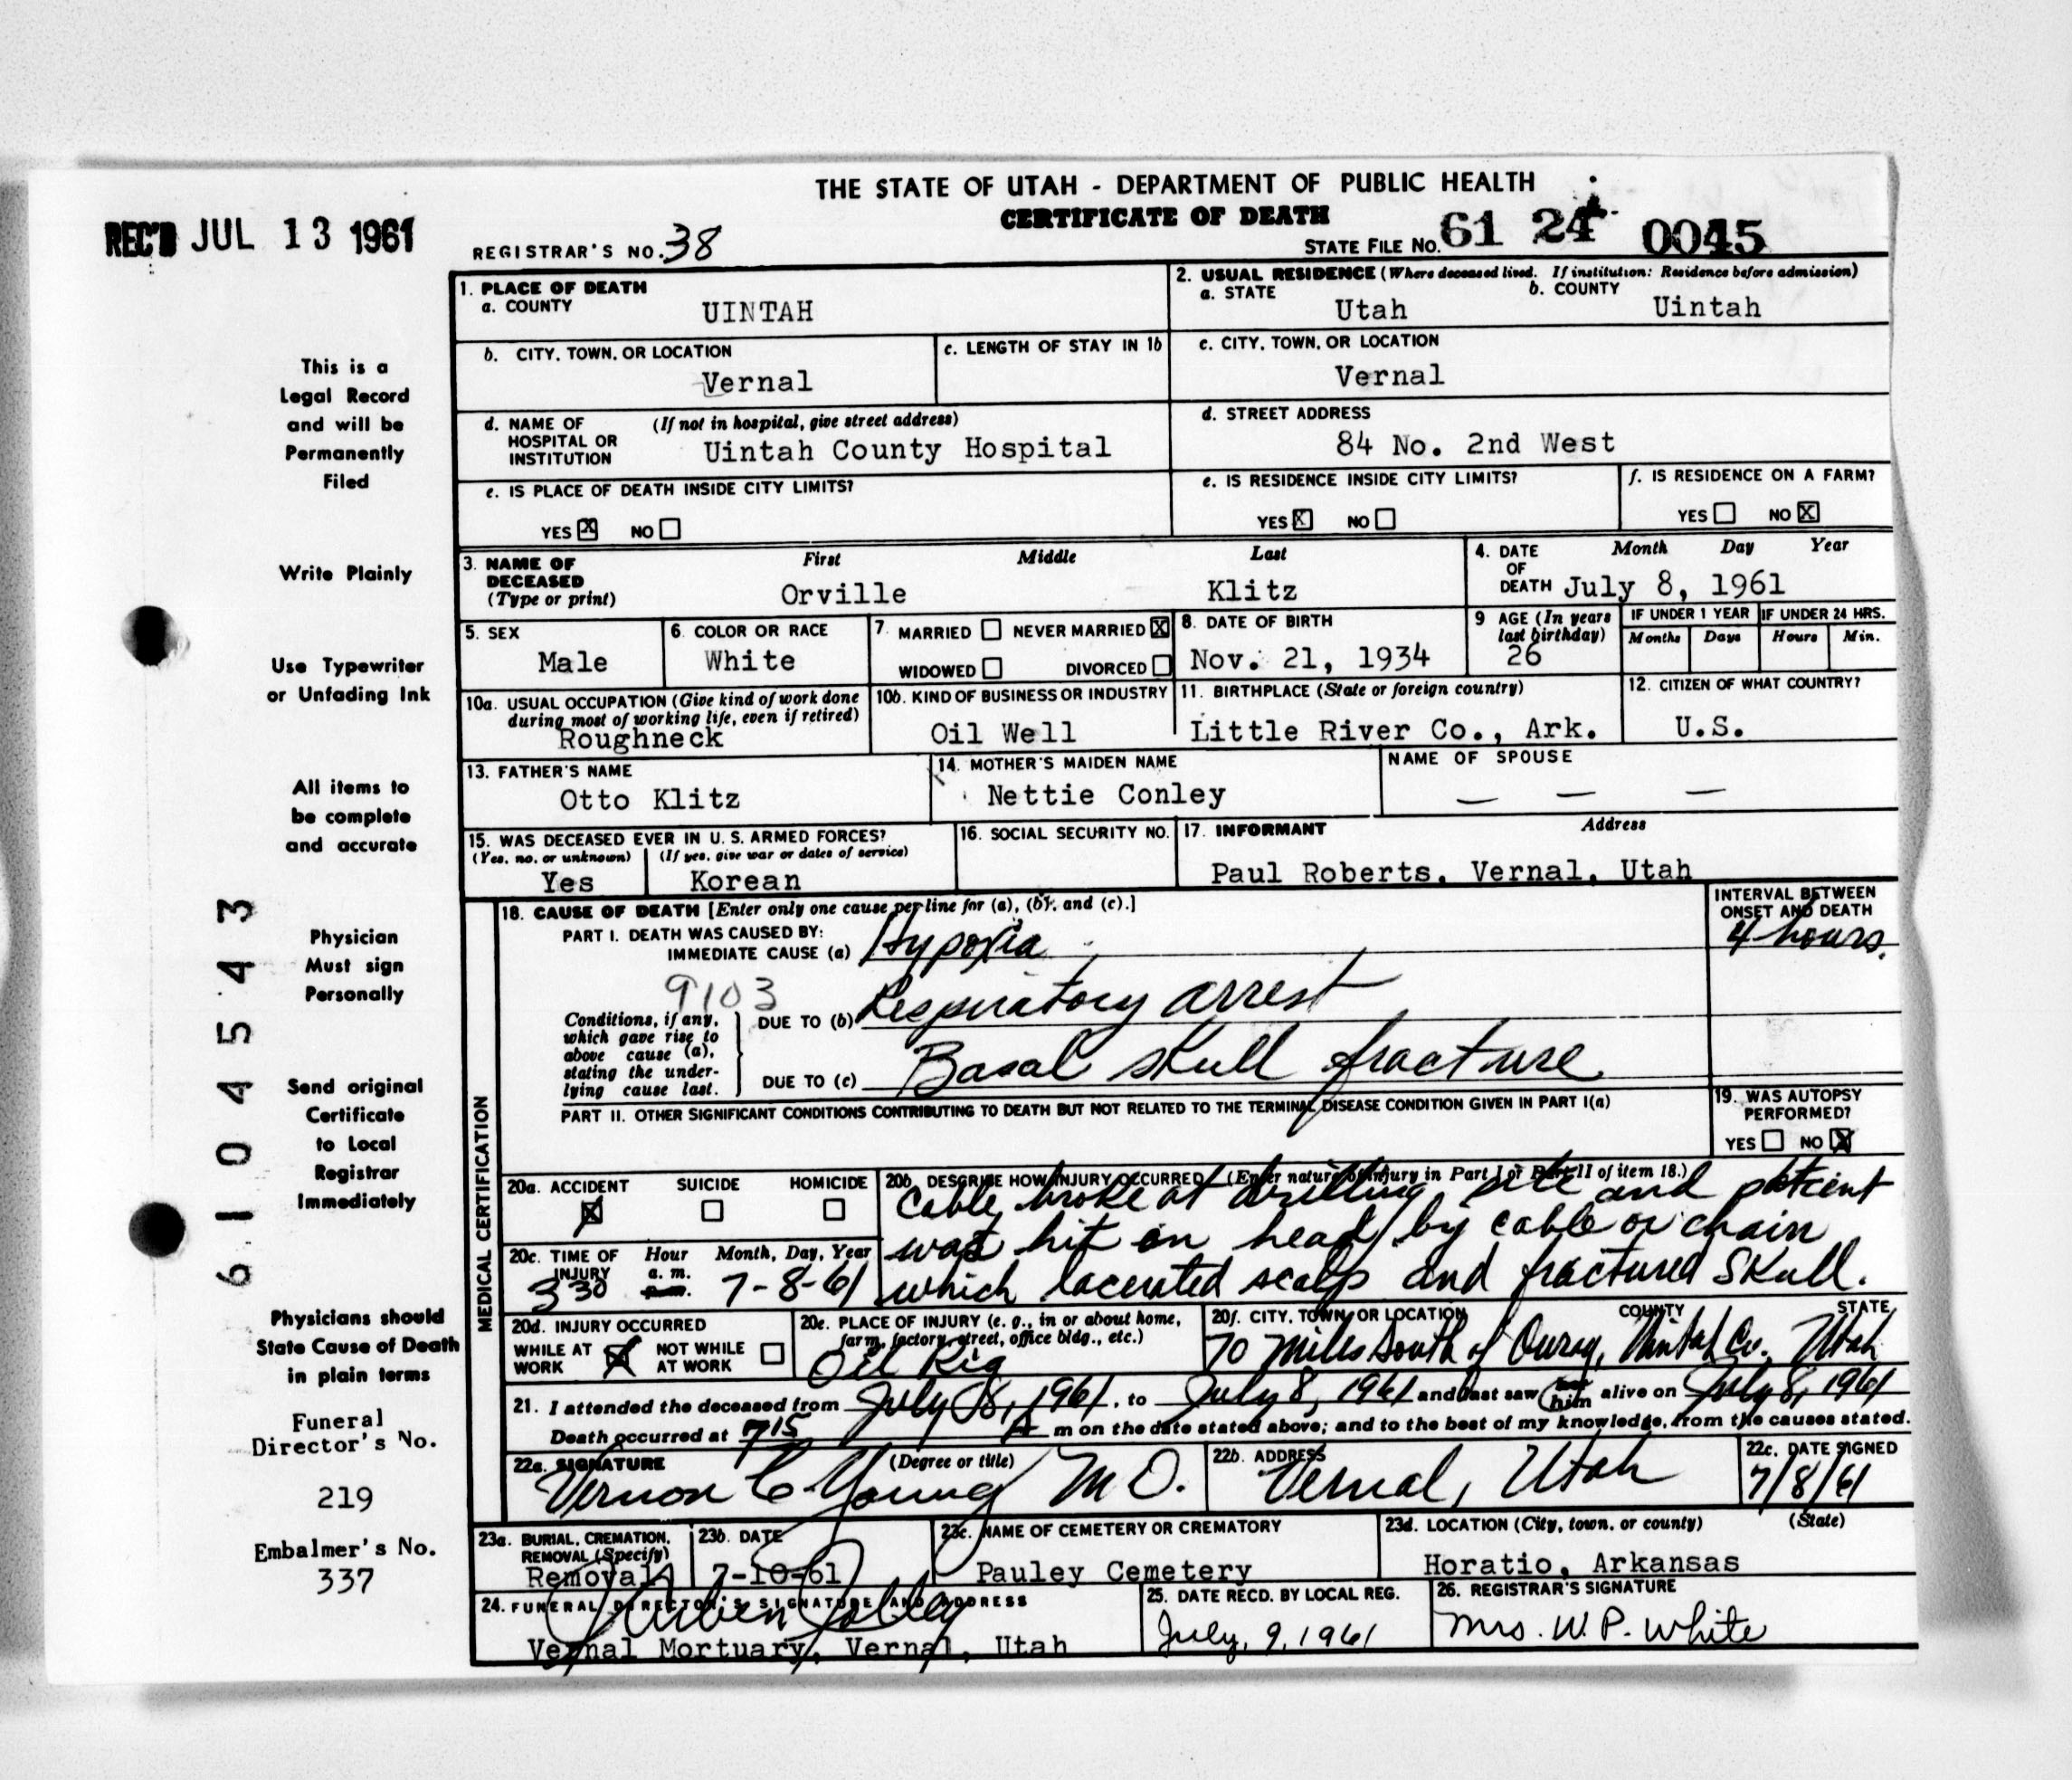 THE STATE OF UTAH - DEPARTMENT OF PUBLIC HEALTH
CERTIFICATE OF DEATH
REC'D JUL 13 1961
REGISTRAR'S NO. 38
STATE FILE NO. 61 24 0045
1. PLACE OF DEATH
a. COUNTY
UINTAH
2. USUAL RESIDENCE (Where deceased lived. If institution: Residence before admission)
a. STATE
Utah
b. COUNTY
Uintah
b. CITY, TOWN, OR LOCATION
Vernal
c. LENGTH OF STAY IN 1b
c. CITY, TOWN, OR LOCATION
Vernal
d. NAME OF HOSPITAL OR INSTITUTION
(If not in hospital, give street address)
Uintah County Hospital
d. STREET ADDRESS
84 No. 2nd West
e. IS PLACE OF DEATH INSIDE CITY LIMITS?
YES X NO
e. IS RESIDENCE INSIDE CITY LIMITS?
YES X NO
f. IS RESIDENCE ON A FARM?
YES NO X
3. NAME OF DECEASED (Type or print)
First Middle Last
Orville Klitz
4. DATE OF DEATH
Month Day Year
July 8, 1961
5. SEX
Male
6. COLOR OR RACE
White
7. MARRIED NEVER MARRIED X
WIDOWED DIVORCED
8. DATE OF BIRTH
Nov. 21, 1934
9 AGE (In years last birthday)
26
IF UNDER 1 YEAR
Months Days
IF UNDER 24 HRS.
Hours Min.
10a. USUAL OCCUPATION (Give kind of work done during most of working life, even if retired)
Roughneck
10b. KIND OF BUSINESS OR INDUSTRY
Oil Well
11. BIRTHPLACE (State or foreign country)
Little River Co., Ark.
12. CITIZEN OF WHAT COUNTRY?
U.S.
13. FATHER'S NAME
Otto Klitz
14. MOTHER'S MAIDEN NAME
Nettie Conley
NAME OF SPOUSE
— — —
15. WAS DECEASED EVER IN U.S. ARMED FORCES?
(Yes, no, or unknown) (If yes, give war or dates of service)
Yes Korean
16. SOCIAL SECURITY NO.
17. INFORMANT Address
Paul Roberts, Vernal, Utah
MEDICAL CERTIFICATION
18. CAUSE OF DEATH [Enter only one cause per line for (a), (b), and (c).]
PART I. DEATH WAS CAUSED BY:
IMMEDIATE CAUSE (a) Hypoxia
INTERVAL BETWEEN ONSET AND DEATH
4 hours.
9103
Conditions, if any, which gave rise to above cause (a), stating the underlying cause last.
DUE TO (b) Respiratory arrest
DUE TO (c) Basal skull fracture
PART II. OTHER SIGNIFICANT CONDITIONS CONTRIBUTING TO DEATH BUT NOT RELATED TO THE TERMINAL DISEASE CONDITION GIVEN IN PART I(a)
19. WAS AUTOPSY PERFORMED?
YES NO X
20a. ACCIDENT SUICIDE HOMICIDE
X
20b. DESCRIBE HOW INJURY OCCURRED. (Enter nature of injury in Part I or Part II of item 18.)
Cable broke at drilling site and patient
was hit on head by cable or chain
which lacerated scalp and fractured skull.
20c. TIME OF INJURY
Hour a. m. p.m. Month, Day, Year
3 30 7-8-61
20d. INJURY OCCURRED
WHILE AT WORK X NOT WHILE AT WORK
20e. PLACE OF INJURY (e. g., in or about home, farm, factory, street, office bldg., etc.)
Oil Rig
20f. CITY, TOWN, OR LOCATION COUNTY STATE
70 Miles South of Ouray, Uintah Co. Utah
21. I attended the deceased from July 8, 1961, to July 8, 1961 and last saw him alive on July 8, 1961
Death occurred at 7 15 A m on the date stated above; and to the best of my knowledge, from the causes stated.
22a. SIGNATURE (Degree or title)
Vernon C Young M D.
22b. ADDRESS
Vernal, Utah
22c. DATE SIGNED
7/8/61
23a. BURIAL, CREMATION, REMOVAL (Specify)
Removal
23b. DATE
7-10-61
23c. NAME OF CEMETERY OR CREMATORY
Pauley Cemetery
23d. LOCATION (City, town, or county) (State)
Horatio, Arkansas
24. FUNERAL DIRECTOR'S SIGNATURE AND ADDRESS
Vernal Mortuary, Vernal, Utah
25. DATE RECD. BY LOCAL REG.
July, 9, 1961
26. REGISTRAR'S SIGNATURE
Mrs. W. P. White
This is a
Legal Record
and will be
Permanently
Filed
Write Plainly
Use Typewriter
or Unfading Ink
All items to
be complete
and accurate
Physician
Must sign
Personally
Send original
Certificate
to Local
Registrar
Immediately
Physicians should
State Cause of Death
in plain terms
Funeral
Director's No.
219
Embalmer's No.
337
61045543